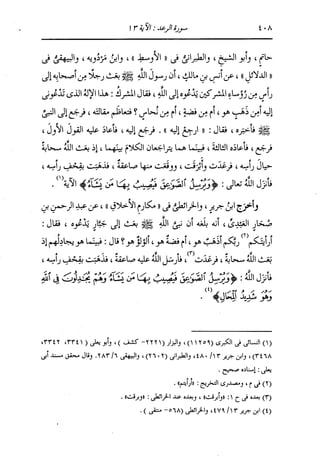 ٤٠٨ سورة الرعد : الآية ١٣
حاتم ، وأبو الشيخ ، والطبرانىُّ فى « الأوسط » ، وابنُ مَرْدُويه ، والبيهقىُّ فى
« الدلائلِ » ، عن أنسِ بنِ مالكٍ ، أن رسولَ اللَّهِ ﷺ بعَث رجلًا مِن أصحابِه إلى
رأسٍ مِن رُؤساءِ المشركين يَدْعُوه إلى اللَّهِ ، فقال المشركُ : هذا الإلهُ الذى تَدْعُونى
إليه أَمِن ذهبٍ هو ، أم مِن فضةٍ ، أم مِن نُحاسٍ ؟ فتعاظَم مقالتَه ، فرجَع إلى النبىِّ
ﷺ فأخبَره ، فقال : « ارجِعْ إليه » . فرجَع إليه ، فأعادَ عليه القولَ الأولَ ،
فرجَع ، فأعادَه الثالثةَ ، فبينما هما يتراجعان الكلامَ بينَهما ، إذ بعَث اللَّهُ سحابةً
حيالَ رأسِه ، فرعَدت وأبْرَقت ، ووقَعت منها صاعقةٌ ، فذهَبت بقِحْفِ رأسِه ،
فأنزَل اللَّهُ تعالى : ﴿ وَيُرْسِلُ ٱلصَّوَٰعِقَ فَيُصِيبُ بِهَا مَن يَشَآءُ ﴾ الآية(١) .
وأخرَج ابنُ جريرٍ ، والخرائطىُّ فى « مكارمِ الأخلاقِ » ، عن عبدِ الرحمنِ بنِ
صُحَارٍ العَبْدِىِّ ، أنه بلَغه أن نبىَّ اللَّهِ ﷺ بعَث إلى جبَّارٍ يَدْعُوه ، فقال :
أرأيتكم(٢) ربَّكم أذهبٌ هو ، أم فضةٌ هو ، ألؤلؤٌ هو ؟ قال : فبينما هو يجادلُهم إذ
بعَث اللَّهُ سحابةً ، فرعَدت(٣) ، فأرسَل اللَّهُ عليه صاعقةً ، فذهَبت بقِحْفِ رأسِه ،
فأنزَل اللَّهُ : ﴿ وَيُرْسِلُ ٱلصَّوَٰعِقَ فَيُصِيبُ بِهَا مَن يَشَآءُ وَهُمْ يُجَٰدِلُونَ فِى ٱللَّهِ
وَهُوَ شَدِيدُ ٱلْمِحَالِ ﴾(٤) .
(١) النسائى فى الكبرى (١١٢٥٩) ، والبزار (٢٢٢١ - كشف) ، وأبو يعلى (٣٣٤١، ٣٣٤٢،
٣٤٦٨) ، وابن جرير ١٣/ ٤٨٠، والطبرانى (٢٦٠٢) ، والبيهقى ٦/ ٢٨٣. وقال محقق مسند أبى
يعلى : إسناده صحيح .
(٢) فى م ، ومصدرى التخريج : « أرأيتم » .
(٣) بعده فى ح ١: « وأبرقت » ، وبعده عند الخرائطى : « وبرقت » .
(٤) ابن جرير ١٣/ ٤٧٩، والخرائطى (٥٦٨ - منتقى) .